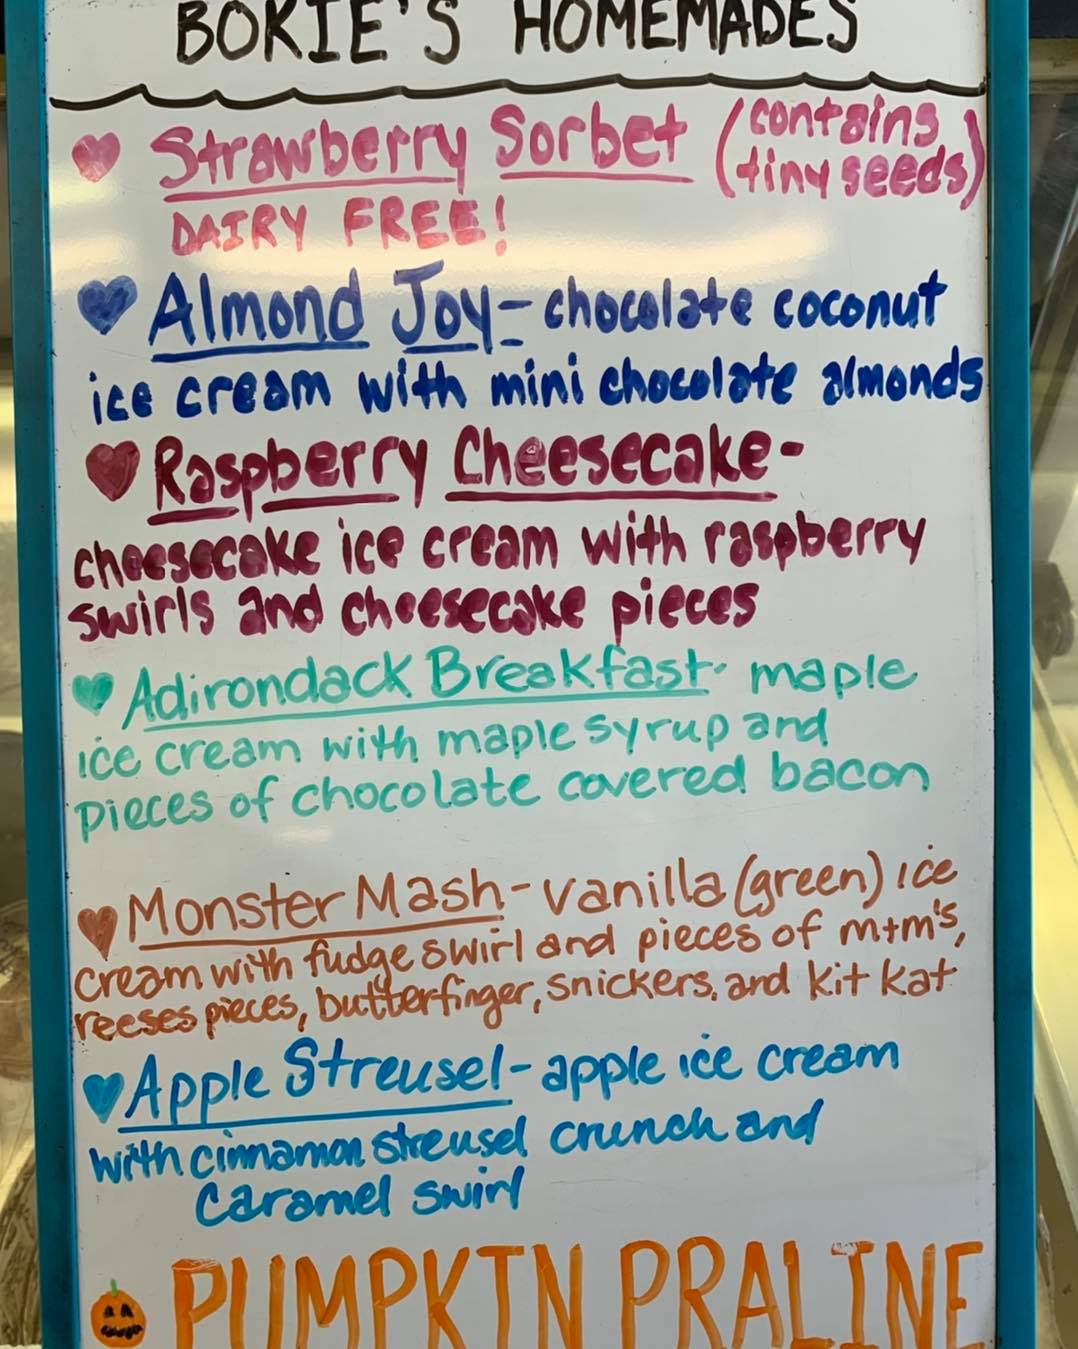 BOKIE'S HOMEMADES
Strawberry Sorbet (contains
tiny seeds)
DAIRY FREE!
Almond Joy- chocolate coconut
ice cream with mini chocolate almonds
Raspberry Cheesecake-
cheesecake ice cream with raspberry
swirls and cheesecake pieces
Adirondack Breakfast- maple
ice cream with maple syrup and
pieces of chocolate covered bacon
Monster Mash- vanilla (green) ice
cream with fudge swirl and pieces of m+m's,
reeses pieces, butterfinger, snickers, and kit kat
Apple Streusel- apple ice cream
with cinnamon streusel crunch and
caramel swirl
PUMPKIN PRALINE